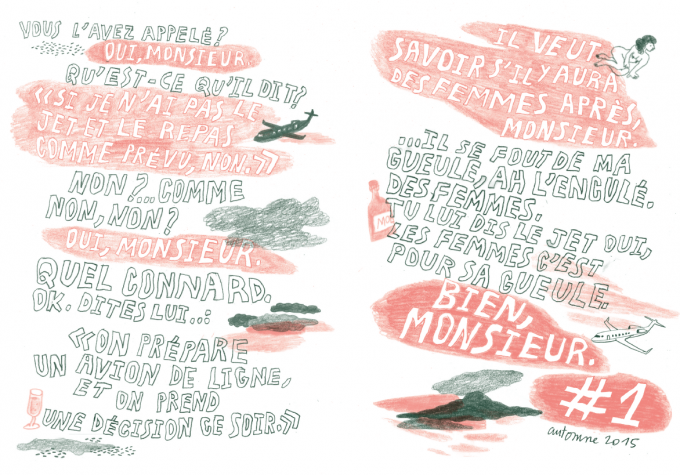 VOUS L'AVEZ APPELÉ?
OUI, MONSIEUR.
QU'EST-CE QU'IL DIT?
«SI JE N'AI PAS LE
JET ET LE REPAS
COMME PRÉVU, NON.»
NON?...COMME
NON, NON?
OUI, MONSIEUR.
QUEL CONNARD.
OK. DITES LUI..:
«ON PRÉPARE
UN AVION DE LIGNE,
ET ON PREND
UNE DÉCISION CE SOIR.»
IL VEUT
SAVOIR S'IL Y AURA
DES FEMMES APRÈS,
MONSIEUR.
...IL SE FOUT DE MA
GUEULE, AH L'ENCULÉ.
DES FEMMES.
TU LUI DIS LE JET OUI,
LES FEMMES C'EST
POUR SA GUEULE.
BIEN,
MONSIEUR.
#1
automne 2015